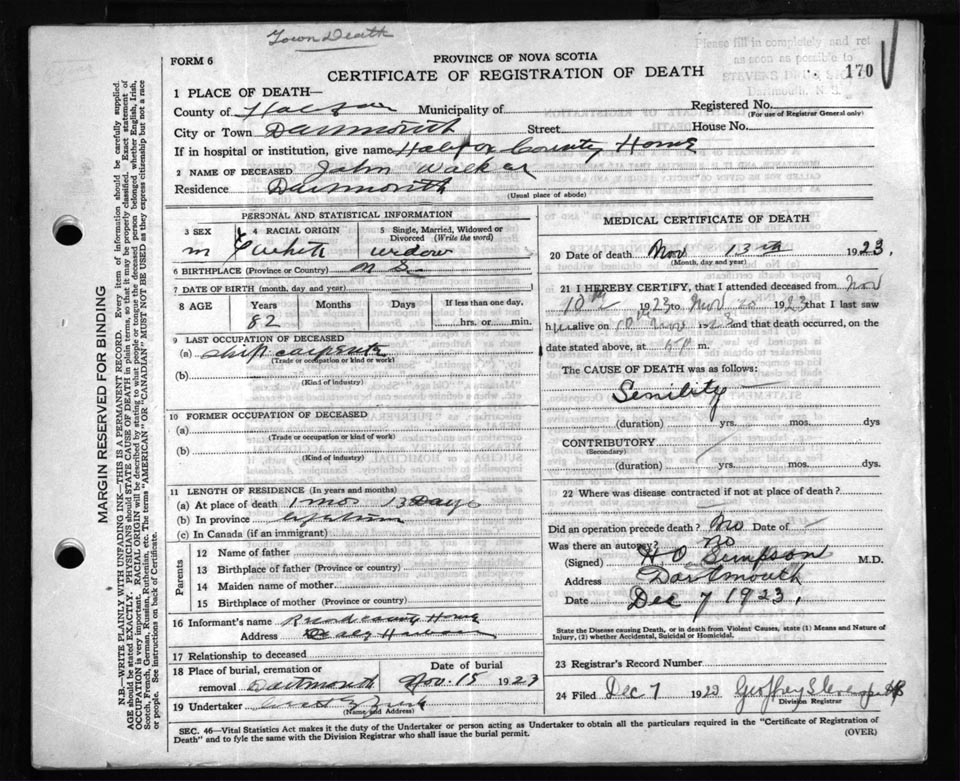 Town Death
FORM 6
PROVINCE OF NOVA SCOTIA
CERTIFICATE OF REGISTRATION OF DEATH
Please fill in completely and ret
as soon as possible to
STEVENS
Dartmouth, N. S.
170
1 PLACE OF DEATH—
County of Halifax Municipality of
Registered No.
(For use of Registrar General only)
City or Town Dartmouth Street House No.
If in hospital or institution, give name Halifax County Home
2 NAME OF DECEASED John Walker
Residence Dartmouth
(Usual place of abode)
PERSONAL AND STATISTICAL INFORMATION
3 SEX
m
4 RACIAL ORIGIN
white
5 Single, Married, Widowed or Divorced (Write the word)
widow
6 BIRTHPLACE (Province or Country) N S
7 DATE OF BIRTH (month, day and year)
8 AGE Years Months Days If less than one day,
82 hrs. or min.
9 LAST OCCUPATION OF DECEASED
(a) ship carpenter
(Trade or occupation or kind of work)
(b)
(Kind of industry)
10 FORMER OCCUPATION OF DECEASED
(a)
(Trade or occupation or kind of work)
(b)
(Kind of industry)
11 LENGTH OF RESIDENCE (In years and months)
(a) At place of death 1 mo 13 Days
(b) In province lifetime
(c) In Canada (if an immigrant)
Parents
12 Name of father
13 Birthplace of father (Province or country)
14 Maiden name of mother
15 Birthplace of mother (Province or country)
16 Informant's name County Home
Address
17 Relationship to deceased
18 Place of burial, cremation or removal Dartmouth
Date of burial
Nov. 15 1923
19 Undertaker
(Name and Address)
MEDICAL CERTIFICATE OF DEATH
20 Date of death Nov 13th 1923.
(Month, day and year)
21 I HEREBY CERTIFY, that I attended deceased from Nov
10th 1923 to Nov 1923 that I last saw
h alive on 10th and that death occurred, on
date stated above, at m.
The CAUSE OF DEATH was as follows:
Senility
(duration) yrs. mos. dys
CONTRIBUTORY
(Secondary)
(duration) yrs. mos. dys.
22 Where was disease contracted if not at place of death?
Did an operation precede death? No Date of
Was there an autopsy? no
(Signed) H O Simpson M.D.
Address Dartmouth
Date Dec 7 1923.
State the Disease causing Death, or in death from Violent Causes, state (1) Means and Nature of
Injury, (2) whether Accidental, Suicidal or Homicidal.
23 Registrar's Record Number
24 Filed Dec 7 1923 Geoffrey Stevens
Division Registrar
SEC. 46—Vital Statistics Act makes it the duty of the Undertaker or person acting as Undertaker to obtain all the particulars required in the "Certificate of Registration of
Death" and to fyle the same with the Division Registrar who shall issue the burial permit.
(OVER)
MARGIN RESERVED FOR BINDING
N.B.—WRITE PLAINLY WITH UNFADING INK—THIS IS A PERMANENT RECORD. Every item of information should be carefully supplied.
AGE should be stated EXACTLY. PHYSICIANS should STATE CAUSE OF DEATH in plain terms, so that it may be properly classified. Exact statement of
OCCUPATION is very important. RACIAL ORIGIN will be described by stating to what people or tongue the deceased person belonged whether English, Irish,
Scotch, French, German, Russian, Ruthenian, etc. The terms "AMERICAN" OR "CANADIAN" MUST NOT BE USED as they express citizenship but not a race
or people. See instructions on back of Certificate.